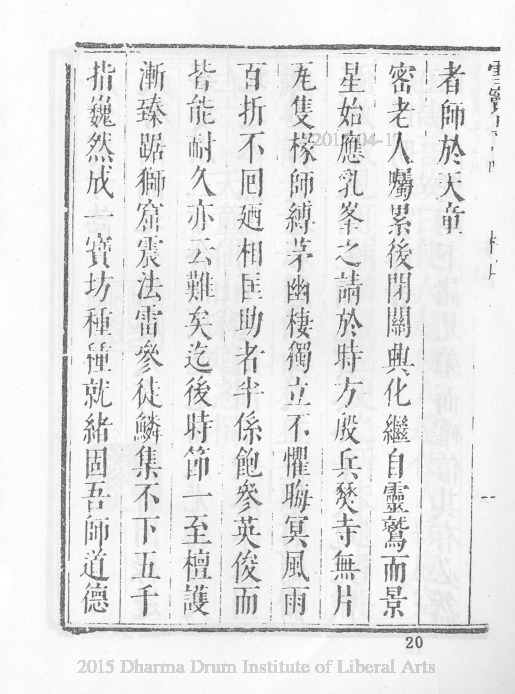 者師於天童
密老人囑累後閉關興化繼自靈鷲而景
星始應乳峯之請於時方殷兵燹寺無片
瓦隻椽師縛茅幽棲獨立不懼晦冥風雨
百折不囘廼相匡助者半係飽參英俊而
皆能耐久亦云難矣迄後時節一至檀護
漸臻踞獅窟震法雷參徒鱗集不下五千
指巍然成一寶坊種種就緒固吾師道德
20
2015 Dharma Drum Institute of Liberal Arts